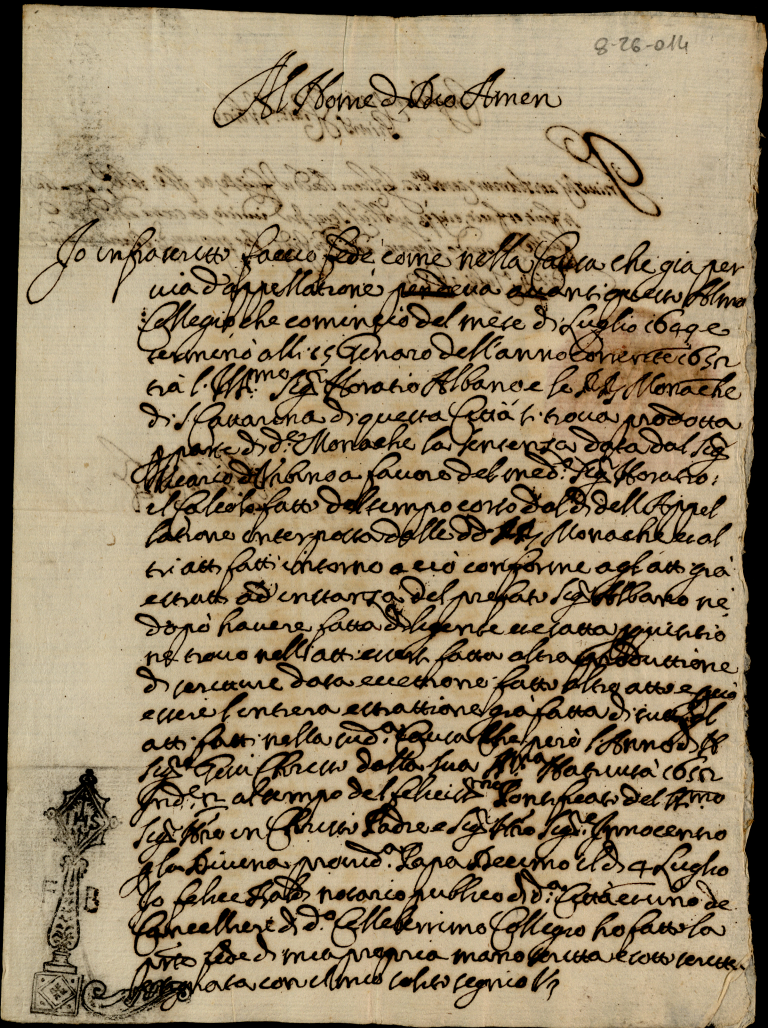 8-26-014
Al Nome di Dio Amen
Io infrascritto faccio fede come nella Causa che già per
via d'appellatione pendeva avanti questo Almo
Collegio che cominciò del mese di Luglio 1649 e
terminò alli 15 Genaro dell'anno corrente 1652
trà l'Ill.mo Sig.r Horatio Albano e le RR Monache
di S Cattarina di questa Città si trova prodotta
p parte di d.e Monache la sentenza data dal Sig.r
Vicario d'Urbino a favore del med.o Sig.r Horatio:
el calcolo fatto del tempo corso dal dì dell'Appel
latione interposta dalle dd RR Monache et al
tri atti fatti intorno a ciò conforme agl'atti già
estratti ad instanza del prefato Sig.r Albano nè
dopò havere fatta diligente et esatta inquisitio
ne trovo nelli atti esser fatta altra produttione
di scritture data eccettione fatto altro atto e
essere l'intiera estrattione già fatta di tutti gl
atti fatti nella sud.a Causa che però l'Anno di N
Sig.re Giesù Christo dalla sua Natività 1652
Ind.e al tempo del felicis.mo Pontificato del
Sig.re Nro in Christo Padre e Sig.re Nro Sig.re Innocentio
p la Divina provid.a Papa Decimo il dì 4 Luglio
Io felice notario publico di d.a Città et uno de
Cancellieri di d.o Celeberrimo Collegio ho fatto la
pnte fede di mia propria mano scritta e sotto scritta
con il mio solito segno
IHS